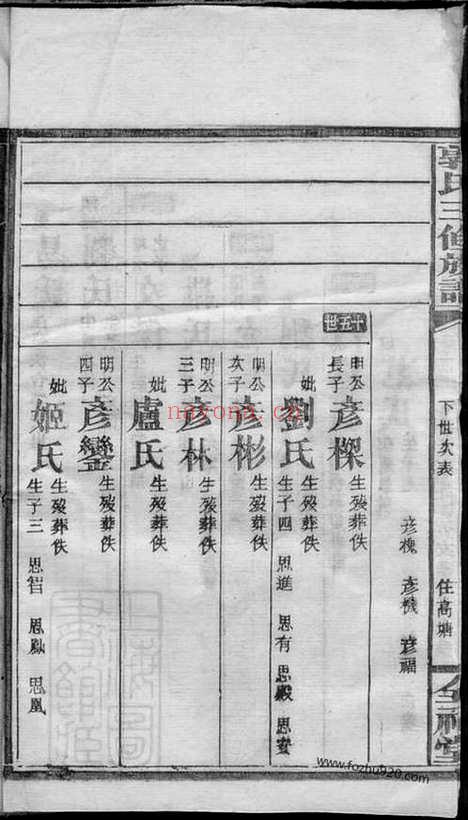 郭氏三修族譜
下世次表
住高塘
彥槐 彥機 彥福
十五世
明公長子 彥樑 生歿葬佚
妣 劉氏 生歿葬佚 生子四 思進 思有 思殿 思安
明公次子 彥彬 生歿葬佚
明公三子 彥林 生歿葬佚
妣 盧氏 生歿葬佚
明公四子 彥鑾 生歿葬佚
妣 姬氏 生歿葬佚 生子三 思智 思鳳 思凰
nayona.cn
www.fozhu920.com